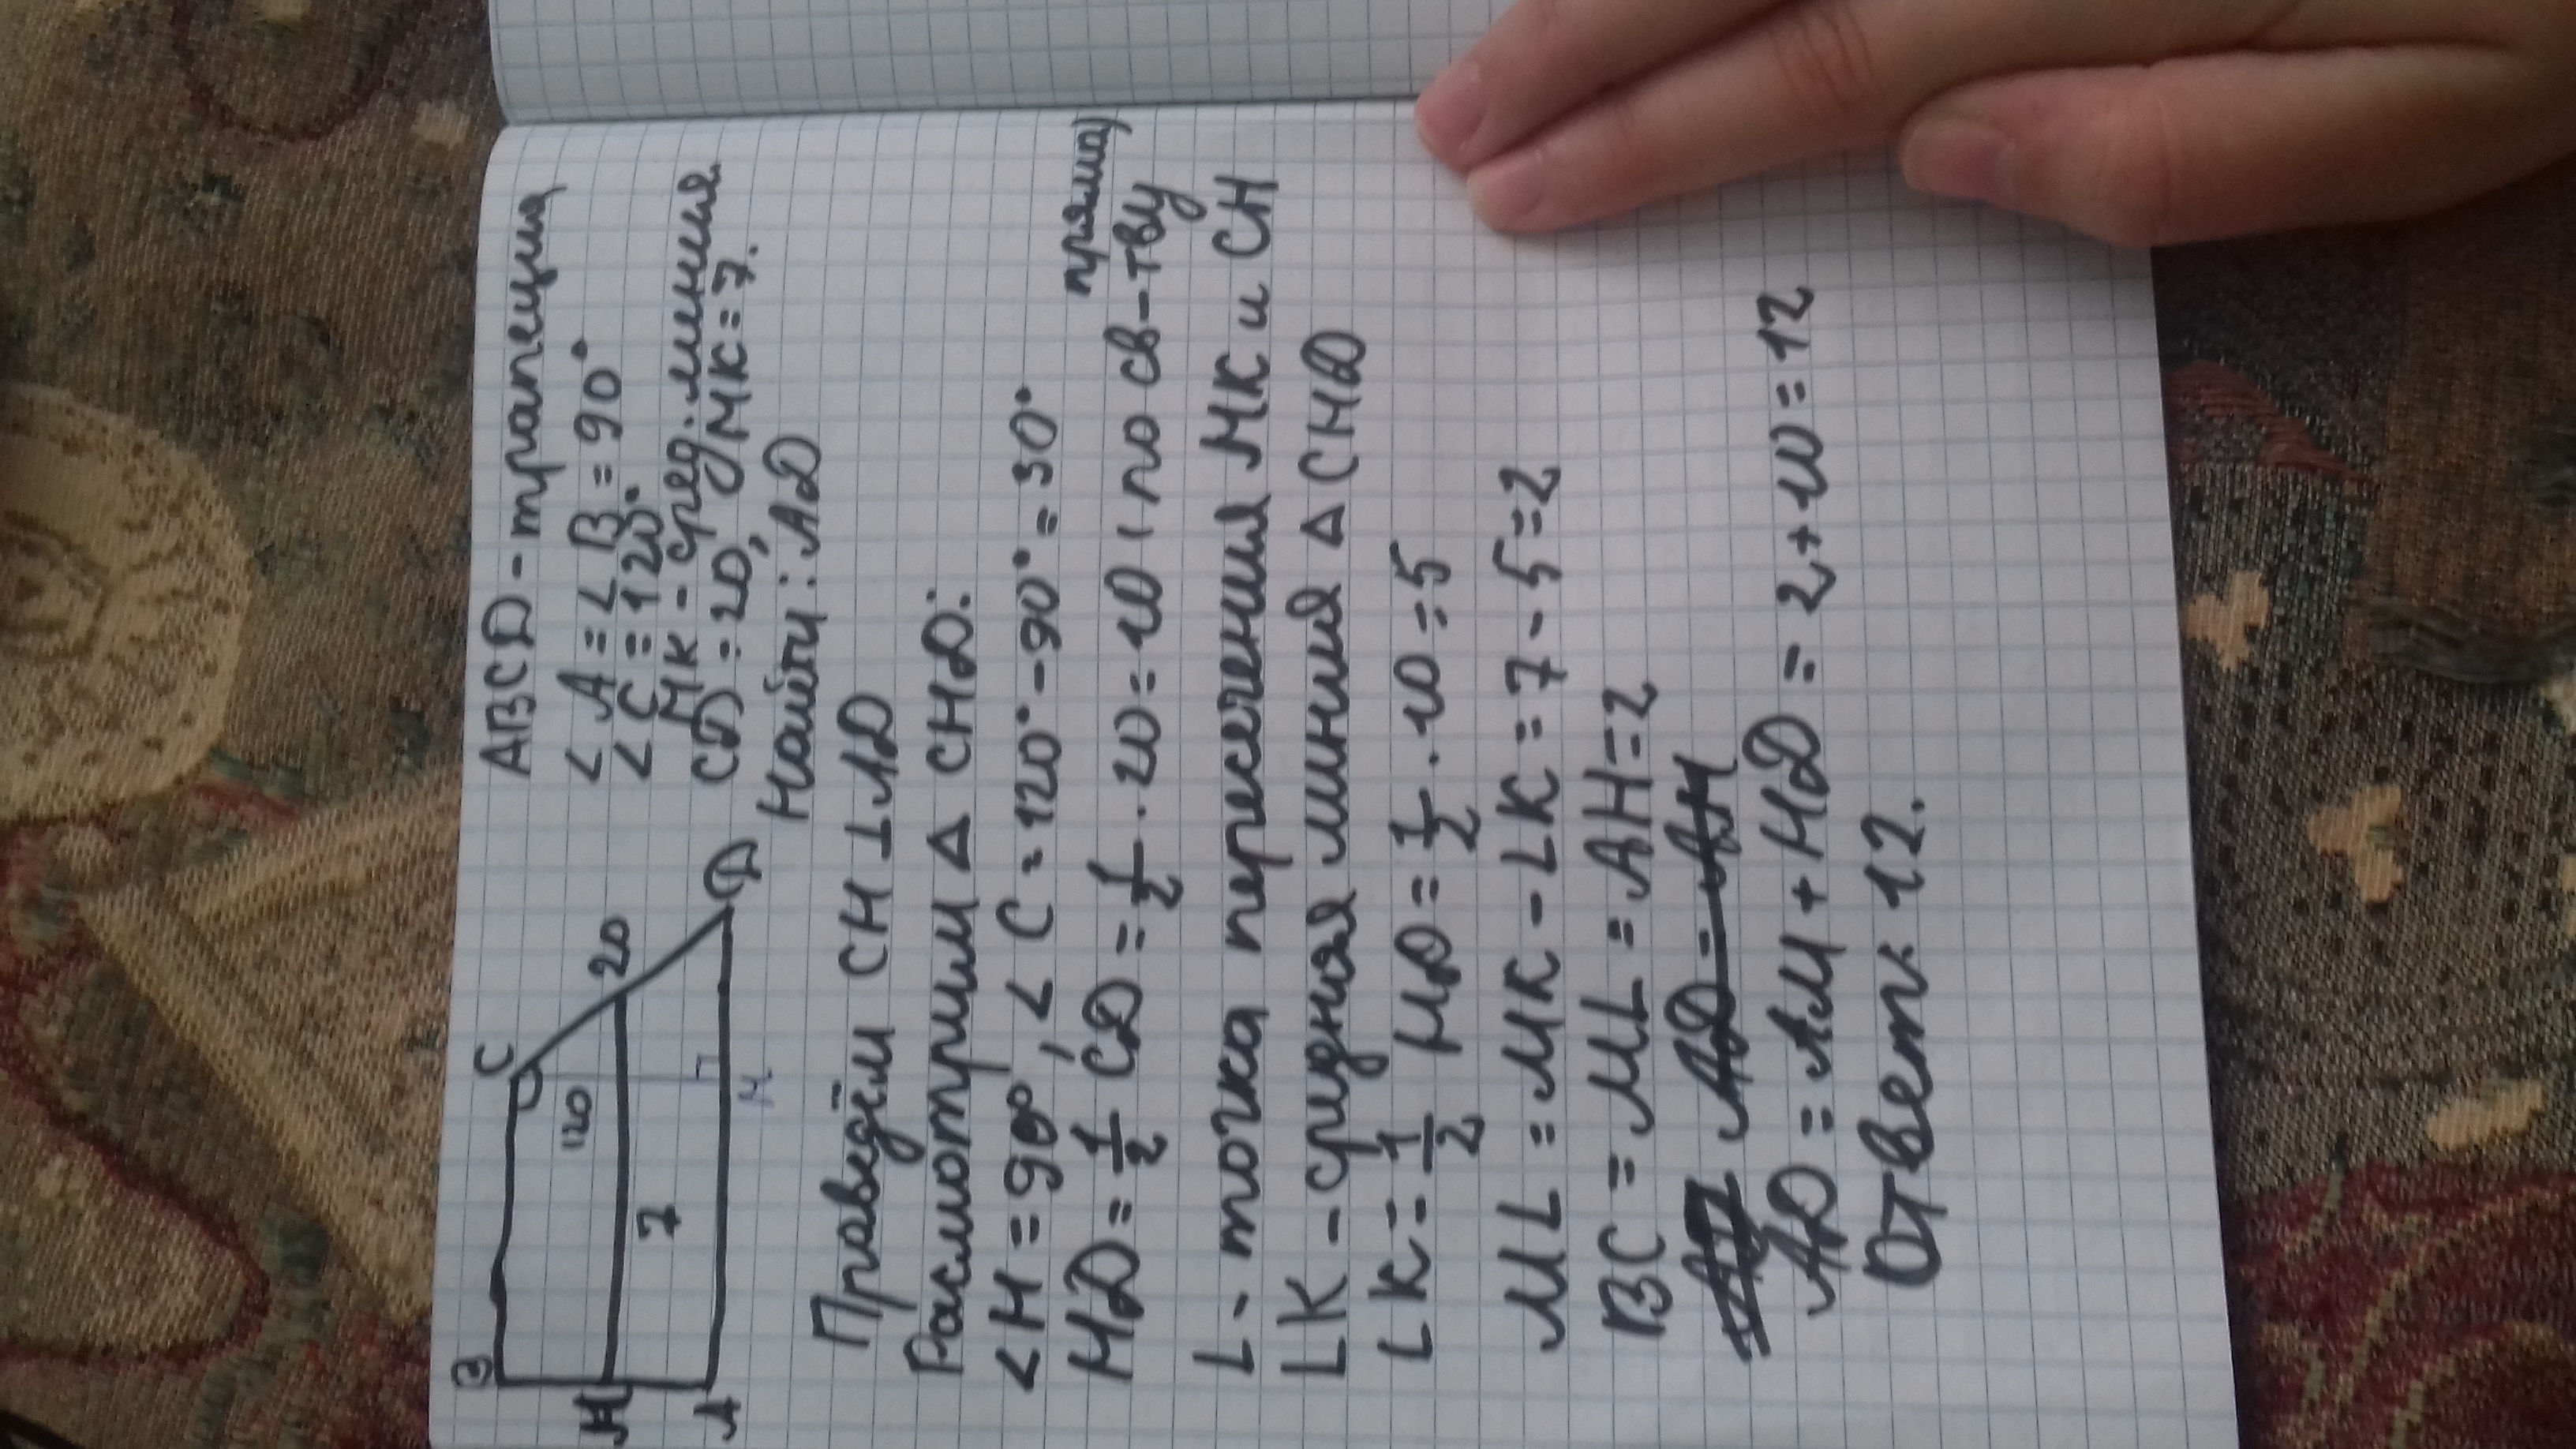 ABCD - трапеция
∠A = ∠B = 90°
∠C = 120°
MK - сред. линия
CD = 20, MK = 7.
Найти: AD
B
C
120
20
M
7
A
H
D
Проведём CH ⊥ AD
Расмотрим Δ CHD:
∠H = 90°, ∠C = 120° - 90° = 30°
HD = 1/2 CD = 1/2 · 20 = 10 (по св-тву прямоу)
L - точка пересечения MK и CH
LK - средняя линия Δ CHD
LK = 1/2 HD = 1/2 · 10 = 5
ML = MK - LK = 7 - 5 = 2
BC = ML = AH = 2
AD = AH
AD = AM + HD = 2 + 10 = 12
Ответ: 12.